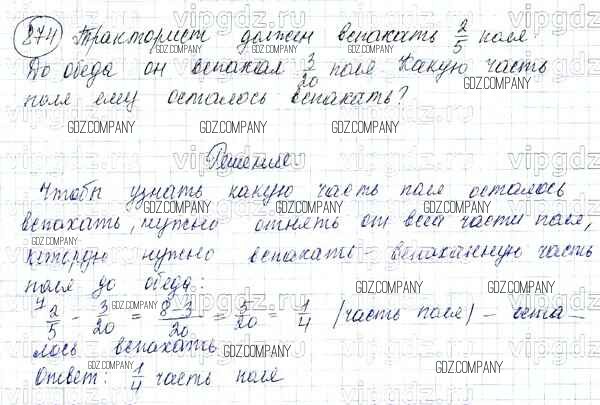 874 Тракторист должен вспахать 2/5 поля
До обеда он вспахал 3/20 поля Какую часть
поля ему осталось вспахать?
Решение.
Чтобы узнать какую часть поля осталось
вспахать, нужно отнять от всей части поля,
которую нужно вспахать - вспаханную часть
поля до обеда:
⁴2/5 - 3/20 = 8-3/20 = 5/20 = 1/4 (часть поля) - оста-
лось вспахать
Ответ: 1/4 часть поля